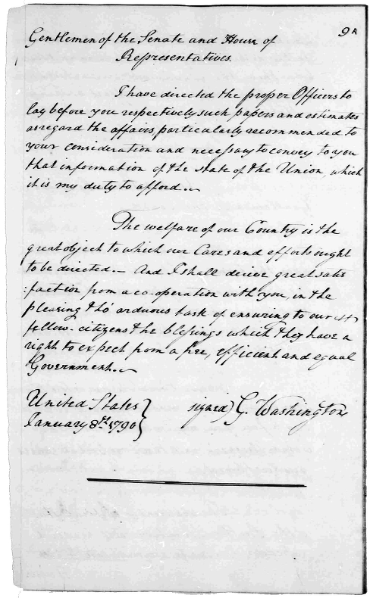 9A
Gentlemen of the Senate and House of
Representatives.
I have directed the proper Officers to
lay before you respectively such papers and estimates
as regard the affairs particularly recommended to
your consideration and necessary to convey to you
that information of the State of the Union, which
it is my duty to afford..
The welfare of our Country is the
great object to which our Cares and efforts ought
to be directed.— And I shall derive great satis
:faction from a co-operation with you, in the
pleasing tho' arduous task of ensuring to our
fellow-citizens the blessings which they have a
right to expect from a free, efficient and equal
Government..
United States
January 8th 1790
signed) G. Washington